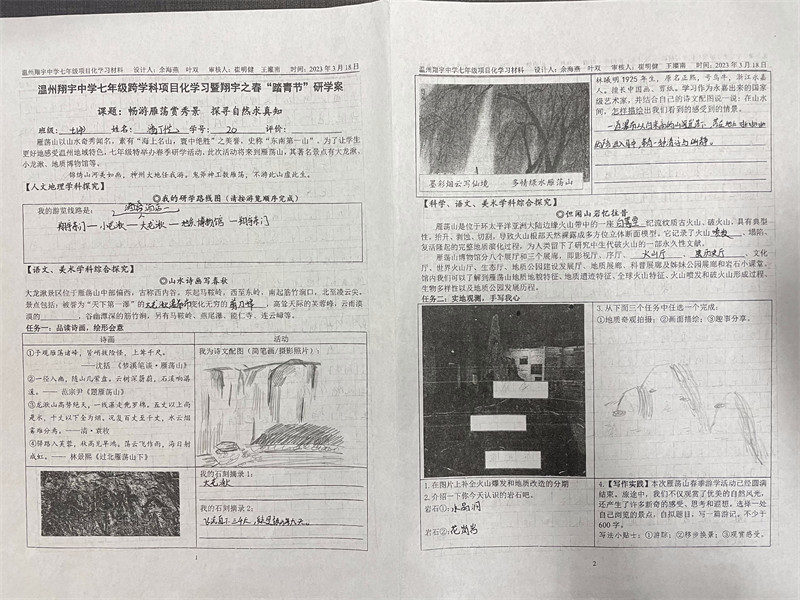 温州翔宇中学七年级项目化学习材料 设计人：余海燕 叶双 审核人：崔明健 王灌南 时间：2023年3月18日
温州翔宇中学七年级跨学科项目化学习暨翔宇之春“踏青节”研学案
课题：畅游雁荡赏秀景 探寻自然求真知
班级： 姓名： 学号：20 评价：
雁荡山以山水奇秀闻名，素有“海上名山，寰中绝胜”之美誉，史称“东南第一山”。为了让学生
更好地感受温州地域特色，七年级特举办春季研学活动，此次活动将来到雁荡山，其著名景点有大龙湫、
小龙湫、地质博物馆等。
锦绣山河美如画，神州大地任我游。鬼斧神工数雁荡，不游此山虚此生。
【人文地理学科探究】
◎我的研学路线图（请按游览顺序完成）
我的游览线路是：
翔宇东门—小龙湫—大龙湫—地质博物馆—翔宇东门
【语文、美术学科综合探究】
◎山水诗画写春秋
大龙湫景区位于雁荡山中部偏西，古称西内谷。东起马鞍岭，西至东岭，南起筋竹涧口，北至凌云尖。
景点包括：被誉为“天下第一瀑”的大龙湫瀑布变化无穷的剪刀峰，高耸天际的芙蓉峰，云雨溟
漠的 ，谷幽潭深的筋竹涧，另有马鞍岭、燕尾瀑、能仁寺、连云嶂等。
任务一：品读诗画，绘形会意
诗画 活动
①予观雁荡诸峰，皆峭拔险怪，上耸千尺。
——沈括 《梦溪笔谈·雁荡山》
②一径入幽，随山几萦盘。云树深叠蔚，石溪响潺
湲。—— 范宗尹《题雁荡山》
③龙湫山高势绝天，一线瀑走兜罗绵。五丈以上尚
是水，十丈以下全为烟。况复百丈至千丈，水云烟
雾难分焉。——清·袁枚
④驿路入芙蓉，秋高见早鸿。荡云飞作雨，海日射
成虹。—— 林景熙《过北雁荡山下》
我为诗文配图（简笔画/摄影照片）：
我的石刻摘录1：
大龙湫
我的石刻摘录2：
1
温州翔宇中学七年级项目化学习材料 设计人：余海燕 叶双 审核人：崔明健 王灌南 时间：2023年3月18日
墨彩烟云写仙境 多情绿水雁荡山
林曦明1925年生，原名正熙，号乌牛，浙江永嘉
人。擅长中国画、剪纸。学习作为永嘉出来的国家
级艺术家，并结合自己的诗文配图说一说：在山水
间，怎样描绘出我们看到的感受到的情景。
【科学、语文、美术学科综合探究】
◎但闻山岩忆往昔
雁荡山是位于环太平洋亚洲大陆边缘火山带中的一座白垩纪流纹质古火山、破火山，具有典型
性，抬升、剥蚀、切割，导致火山根部天然裸露成多方位立体断面模型，它记录了火山喷发、塌陷、
复活隆起的完整地质演化过程，为人类留下了研究中生代破火山的一部永久性文献。
雁荡山博物馆分八个展厅和三个展廊，即影视厅、序厅、火山厅、 、文化
厅、世界火山厅、生态厅、地质公园建设发展厅、地质展廊、科普展廊及姊妹公园展廊和岩石小课堂。
馆内我们可以了解到雁荡山地质地貌特征、地质遗迹特征、全球火山特征、火山喷发和破火山形成过程、
生物多样性以及地质公园发展历程。
任务二：实地观测，手写我心
1.在图片上补全火山爆发和地质改造的分期
2.介绍一下你今天认识的岩石吧。
岩石①：水晶洞
岩石②：花岗岩
3.从下面三个任务中任选一个完成：
①地质奇观拍摄；②画面描绘；③趣事分享。
4.【写作实践】本次雁荡山春季游学活动已经圆满
结束。旅途中，我们不仅观赏了优美的自然风光，
还产生了许多新奇的感受、思考和遐想。选择一处
自己浏览的景点，自拟题目，写一篇游记。不少于
600字。
写法小贴士：①游踪；②移步换景；③观赏感受。
2